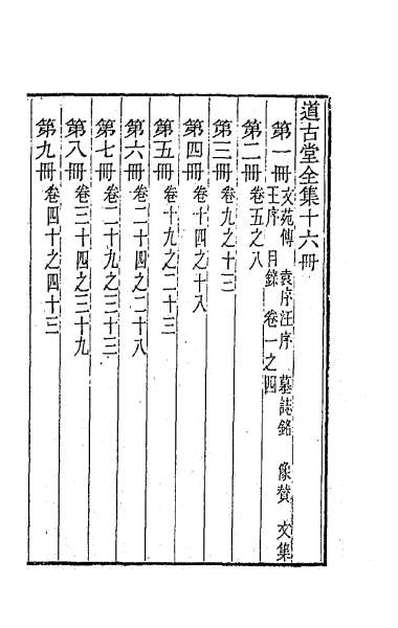 道古堂全集十六冊
第一冊 文苑傳 袁序 汪序 墓誌銘 像贊 文集
王序 目錄 卷一之四
第二冊 卷五之八
第三冊 卷九之十三
第四冊 卷十四之十八
第五冊 卷十九之二十三
第六冊 卷二十四之二十八
第七冊 卷二十九之三十三
第八冊 卷三十四之三十九
第九冊 卷四十之四十三